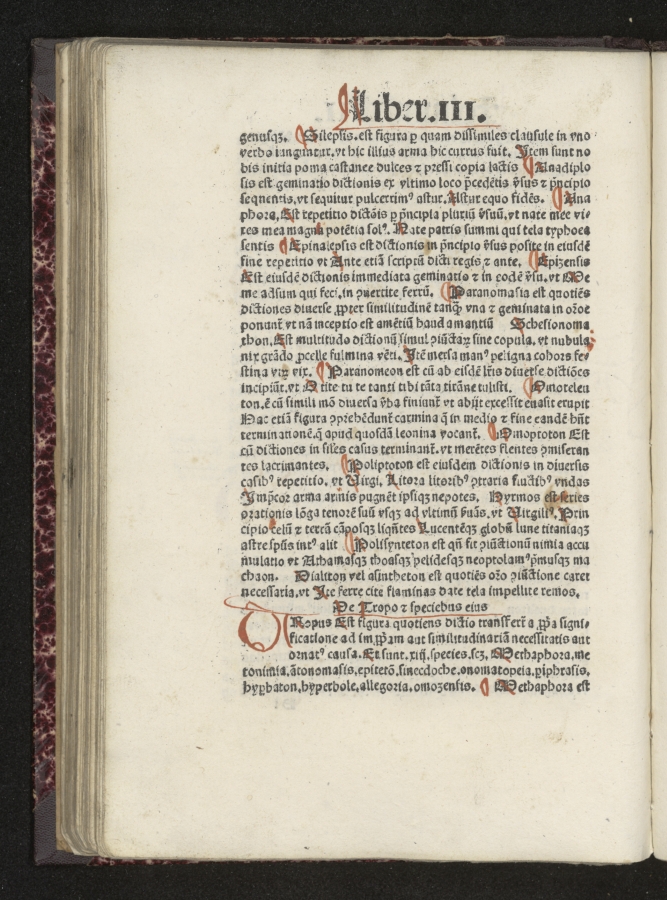 Liber.III.
genusqꝫ. Silepsis.est figura ꝑ quam dissimiles clausule in vno
verbo iunguntur.vt hic illius arma hic currus fuit. Item sunt no
bis initia poma castanee dulces ⁊ pressi copia lactis Anadiplo
sis est geminatio dictionis ex vltimo loco p̄cedētis v̄sus ⁊ p̄ncipio
sequentis.vt sequitur pulcerrimꝰ astur.Astur equo fidēs. Ana
phora.Est repetitio dictōis ꝑ p̄ncipia pluriū v̄suū.vt nate mee vi
res mea magna potētia solꝰ. Nate patris summi qui tela typhoea
sentis Epinalepsis est dictionis in p̄ncipio v̄sus posite in eiusdē
fine repetitio vt Ante etiā scriptū dicti regis ⁊ ante. Epizensis
Est eiusdē dictionis immediata geminatio ⁊ in eodē v̄su.vt Me
me adsum qui feci.in me vertite ferrū. Paranomasia est quotiēs
dictiones diuerse ꝓpter similitudinē tanqꝫ vna ⁊ geminata in oōe
ponunt̄ vt nā inceptio est amētiū haud amantiū Schesionoma
thon.Est multitudo dictionū simul ꝯiūctaꝝ sine copula.vt nubula
nix grādo ꝓcelle fulmina vēti. Itē mersa manꝰ peligna cohors fe
stina vir vix. Paranomeon est cū ab eisdē lr̄is diuerse dictiōes
incipiūt.vt O tite tu te tanti tibi tāta tirāne tulisti. Omoteleu
ton.ē cū simili mō diuersa v̄ba finiunt̄ vt abijt excessit euasit erupit
Hac etiā figura ꝯprehēdunt̄ carmina q̄ in medio ⁊ fine eandē hn̄t
terminationē.q̄ apud quosdā leonina vocant̄. Omoptoton Est
cū dictiones in siłes casus terminant̄.vt merētes flentes ꝯmiseran
tes lacrimantes. Poliptoton est eiusdem dictionis in diuersis
casibꝰ repetitio.vt Virgi. Litora litoribꝰ ꝯtraria fluctibꝰ vndas
Imp̄cor arma armis pugnēt ipsiqꝫ nepotes. Hyrmos est series
orationis lōga tenorē suū vsqꝫ ad vltimū ẜuās.vt Virgiliꝰ.Prin
cipio celū ⁊ terrā cāposqꝫ liqn̄tes Lucentēqꝫ globū lune titaniaqꝫ
astre spūs intꝰ alit Polisynteton est qn̄ fit ꝯiūctionū nimia accu
mulatio vt Athamasqꝫ thoasqꝫ pelidesqꝫ neoptolamꝰ p̄musqꝫ ma
chaon. Dialiton vel asintheton est quotiēs oīo ꝯiūctione caret
necessaria.vt Ite ferte cite flaminas date tela impellite remos.
De Tropo ⁊ speciebus eius
TRopus Est figura quotiens dictio transfert̄ a ꝓpria signi-
ficatione ad imꝓpriam aut similitudinariā necessitatis aut
ornatꝰ causa.Et sunt.xiij.species.scꝫ.Methaphora.me
tonimia.ātonomasis.epitetō.sinecdoche.onomatopeia.ꝑiphrasis.
hyꝑbaton.hyperbole.allegoria.omozensis. Methaphora est